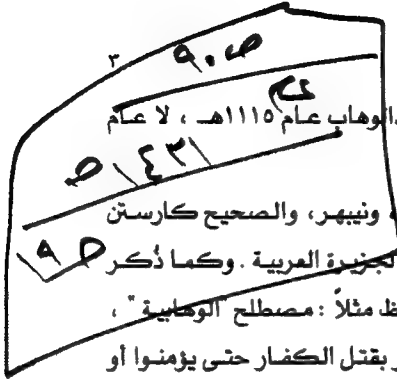 ٣
ص ٩٠
دالوهاب عام ١١١٥هـ ، لا عام
ص ١٤٣١
ونيبهر، والصحيح كارستن
ص ١٩
لجزيرة العربية . وكما ذُكر
ظ مثلاً : مصطلح "الوهابية" ،
بقتل الكفار حتى يؤمنوا أو